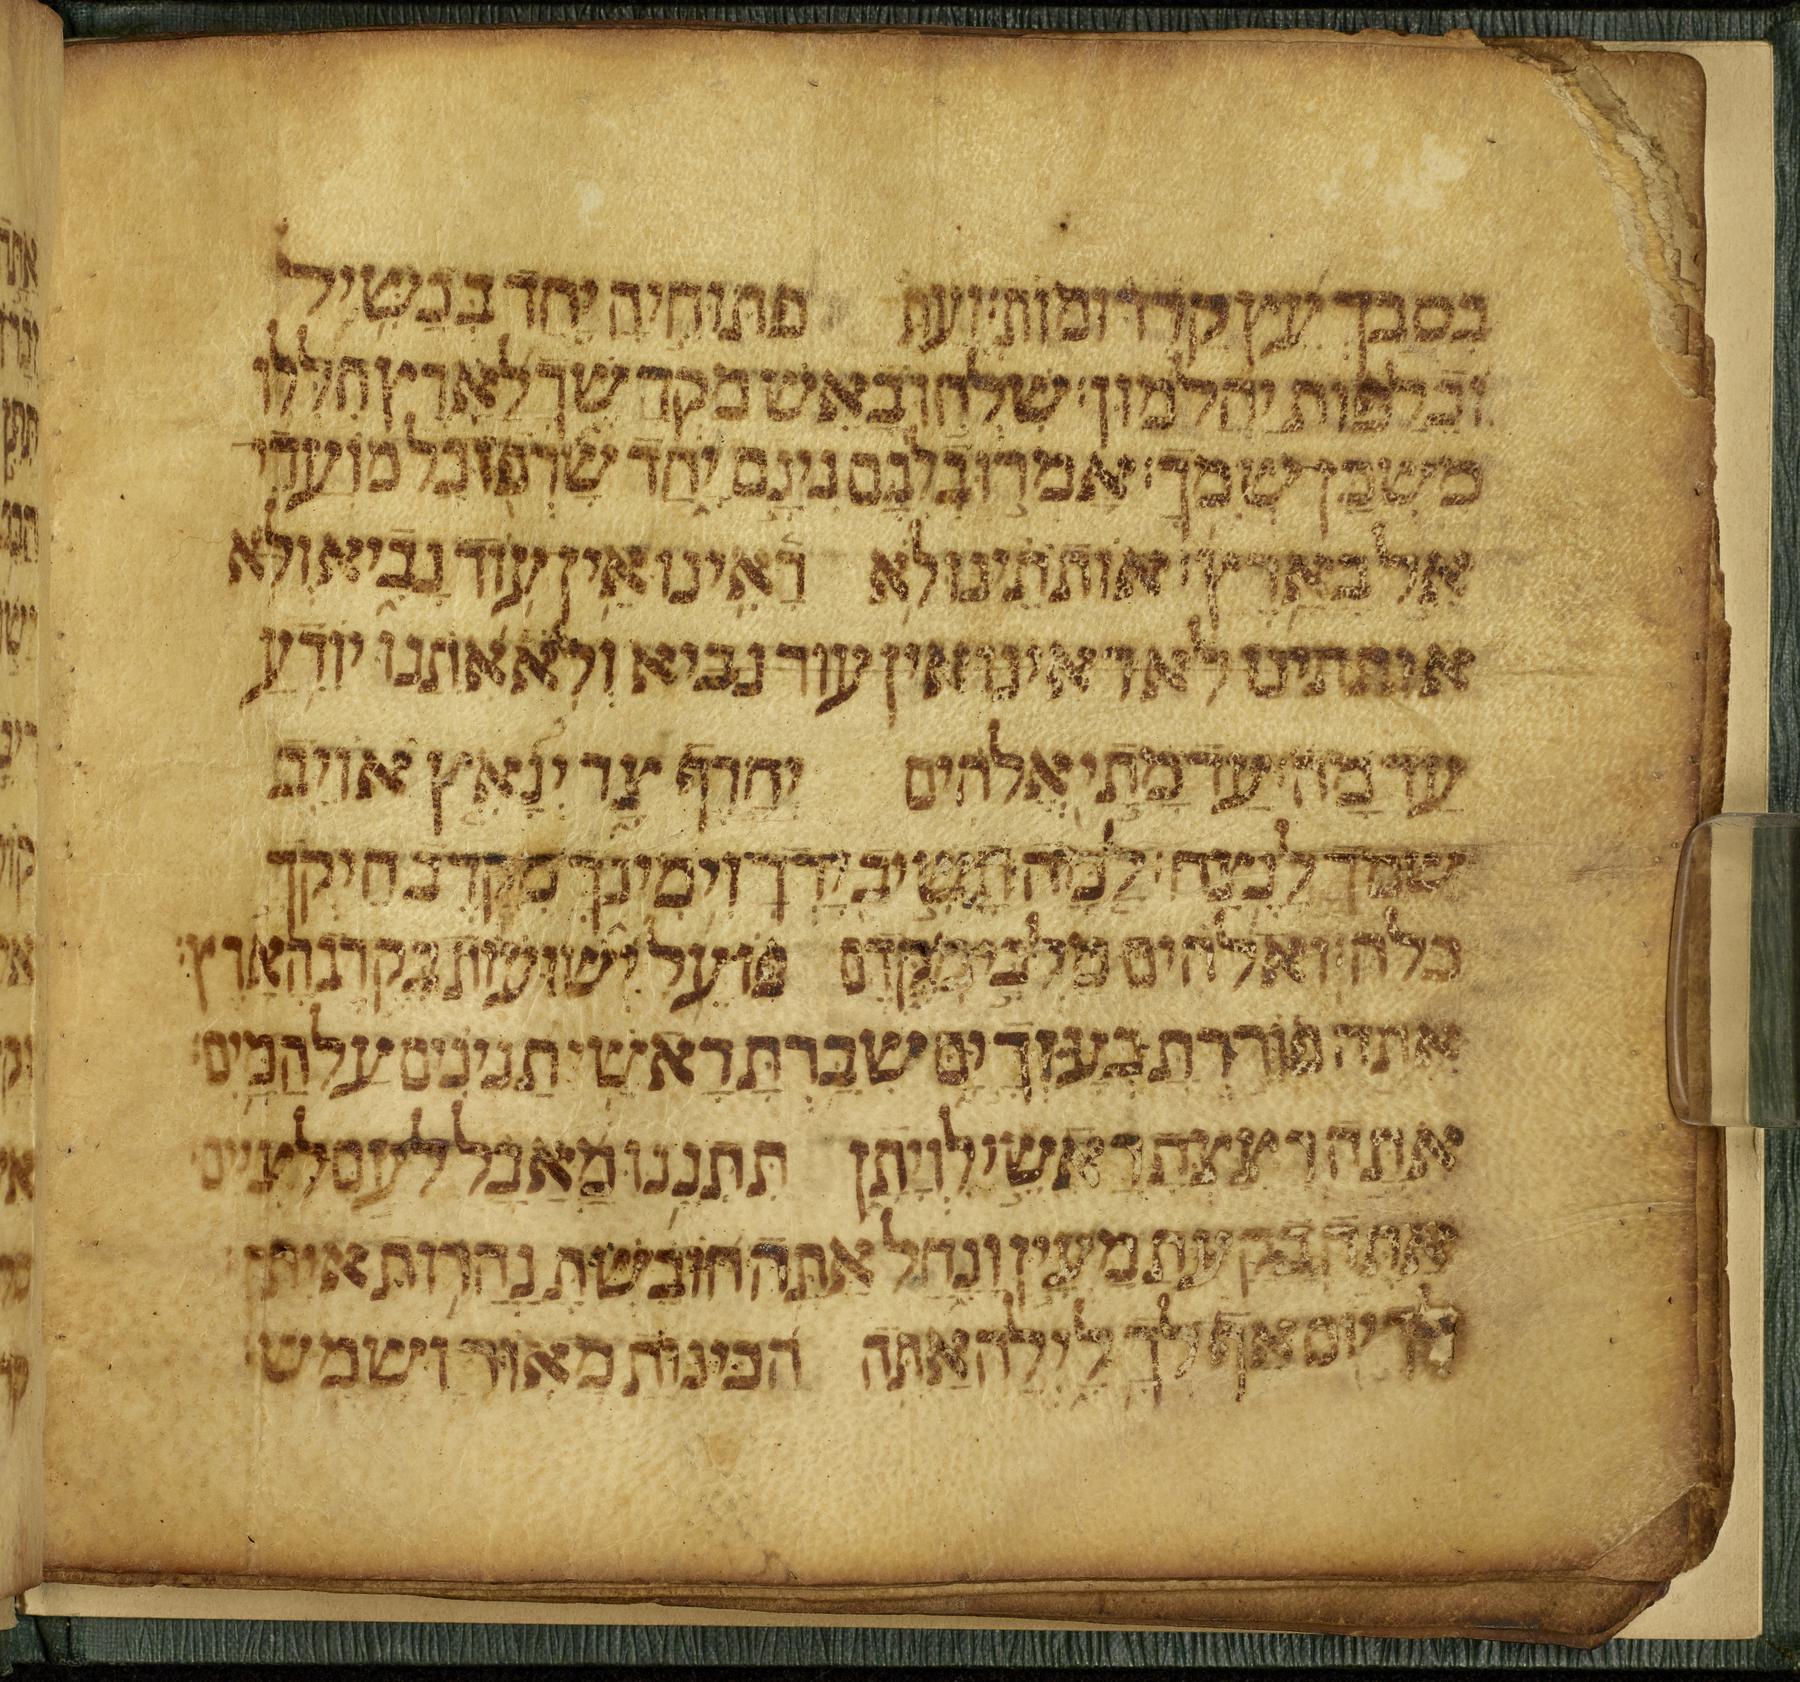 בסבך עץ קרדומות׃ ועת פתוחיה יחד בכשיל
וכלפות יהלמון׃ שלחו באש מקדשך לארץ חללו
משכן שמך׃ אמרו בלבם נינם יחד שרפו כל מועדי
אל בארץ׃ אותתינו לא ראינו אין עוד נביא ולא
אותתינו לא ראינו אין עוד נביא ולא אתנו יודע
עד מה׃ עד מתי אלהים יחרף צר ינאץ אויב
שמך לנצח׃ למה תשיב ידך וימינך מקרב חיקך
כלה׃ ואלהים מלכי מקדם פועל ישועות בקרב הארץ׃
אתה פוררת בעזך ים שברת ראשי תנינים על המים׃
אתה רצצת ראשי לויתן תתננו מאכל לעם לציים׃
אתה בקעת מעין ונחל אתה הובשת נהרות איתן
לך יום אף לך לילה אתה הכינות מאור ושמש